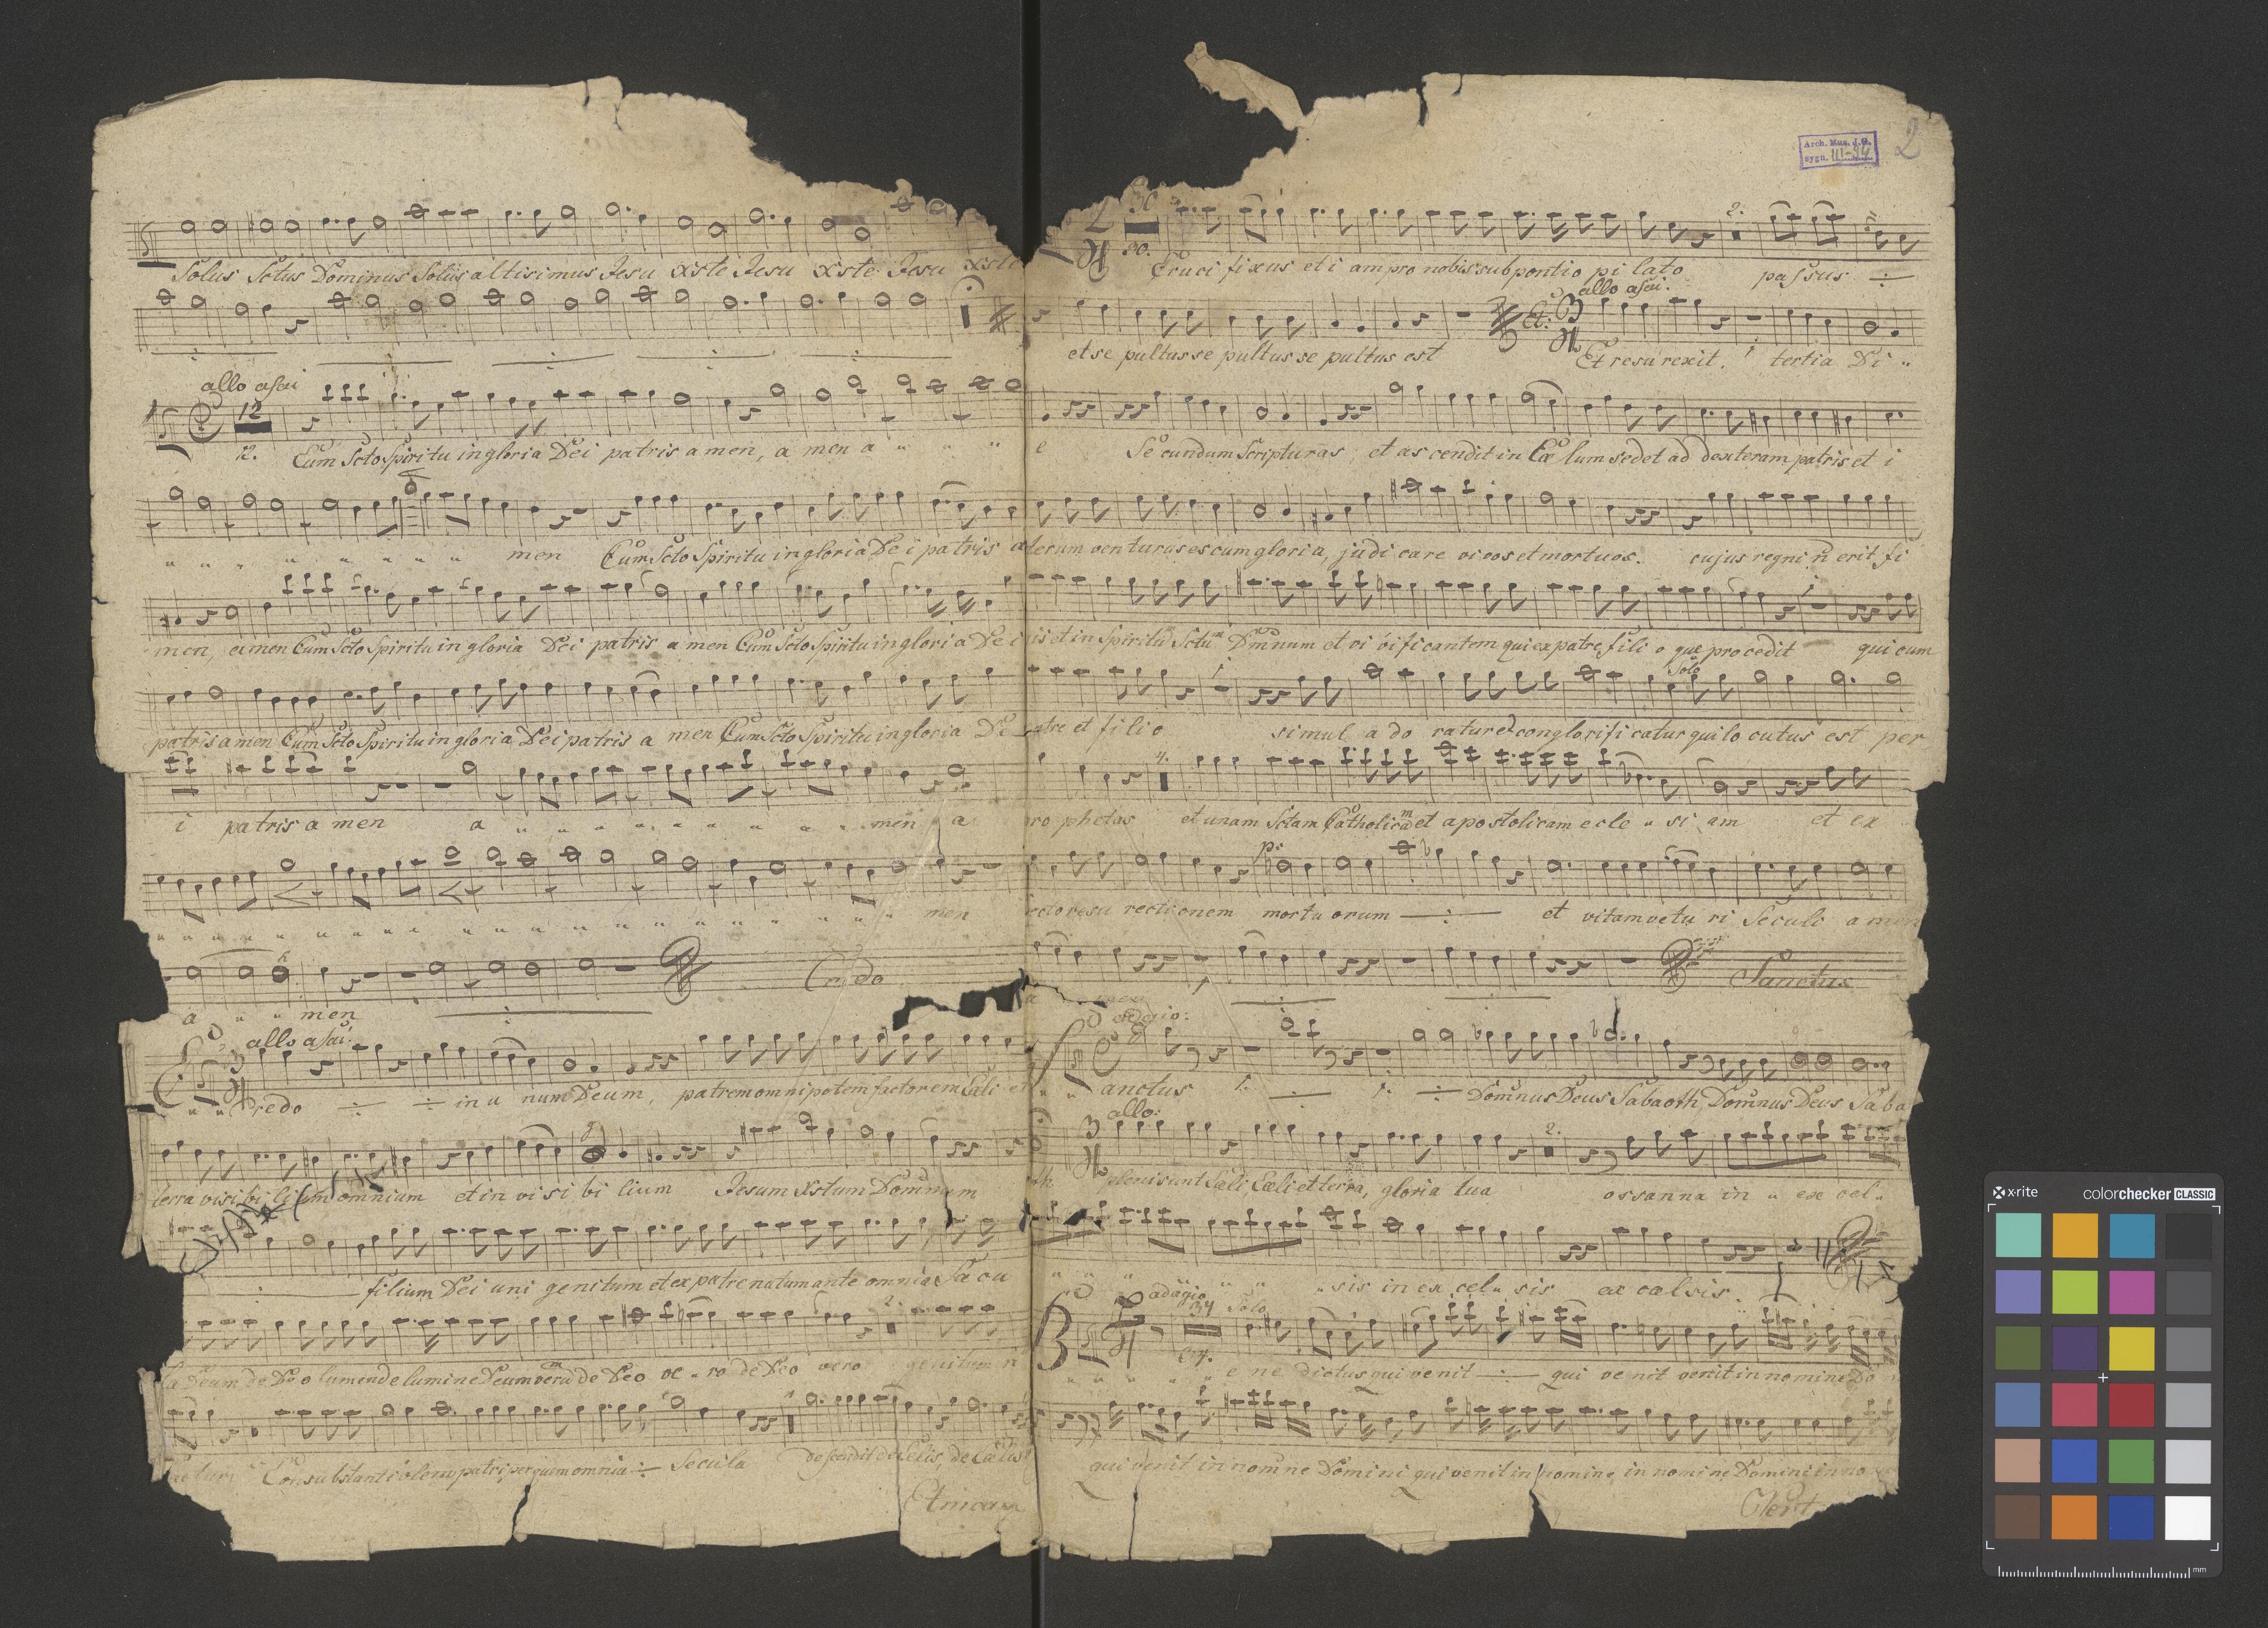 Solus Solus Dominus Solus altisimus Jesu Xste Jesu Xste Jesu Xste
allo asai
12
12. Cum Scto Spiritu in gloria Dei patris amen, a men a
men Cum Scto Spiritu in gloria Dei patris a
men, amen Cum Scto Spiritu in gloria Dei patris a men Cum Scto Spiritu in gloria De i
patris amen Cum Scto Spiritu in gloria Dei patris a men Cum Scto Spiritu in gloria De
i patris a men a men a
men
Credo
a men
allo asai.
Credo in u num Deum, patrem omnipotem factorem Cæli et
terra visi bi lium omnium et in vi si bi lium Jesum Xstum Domĩnum
filium Dei uni genitum et ex patre natum ante omnia Sæ cu
la Deum de Deo lumen de lumine Deum verũ de Deo ve ro de Deo vero genitum
Consubstantialem patri per quem omnia Secula descendit de Cælis, de Cælis
2
Arch. Mus. J.G.
sygn. III-34
30
30. Cruci fixus eti am pro nobis sub pontio pi lato passus
2.
allo asai.
et se pultus se pultus se pultus est Et resu rexit. tertia Di
e Se cundum Scripturas, et as cendit in Cæ lum sedet ad dexteram patris et i
terum venturus es cum gloria, judi care vivos et mortuos. cujus regni ñ erit fi
is et in Spiritũ Sctũ Dmnum et vi vificantem qui ex patre fili o que pro cedit qui cum
Solo
patre et filio simul a do ratur et conglorifi catur qui lo cutus est per
4.
pro phetas et unam Sctam Catholicam et apostolicam ecle si am et ex
p:
pecto resu rectionem mortu orum et vitam vetu ri Seculi a men
Sanctus
adagio:
anctus 1. 1. Domnus Deus Sabaoth, Domnus Deus Saba
allo:
2.
oth pleni sunt Cæli Cæli et terra, gloria tua ossanna in ex cel
sis in ex cel sis ex celsis.
adagio
34 Solo
e ne dictus qui ve nit qui ve nit venit in nomine Do
qui venit in nomne Domini qui venit in nomine, in nomine Domini in no
Vert